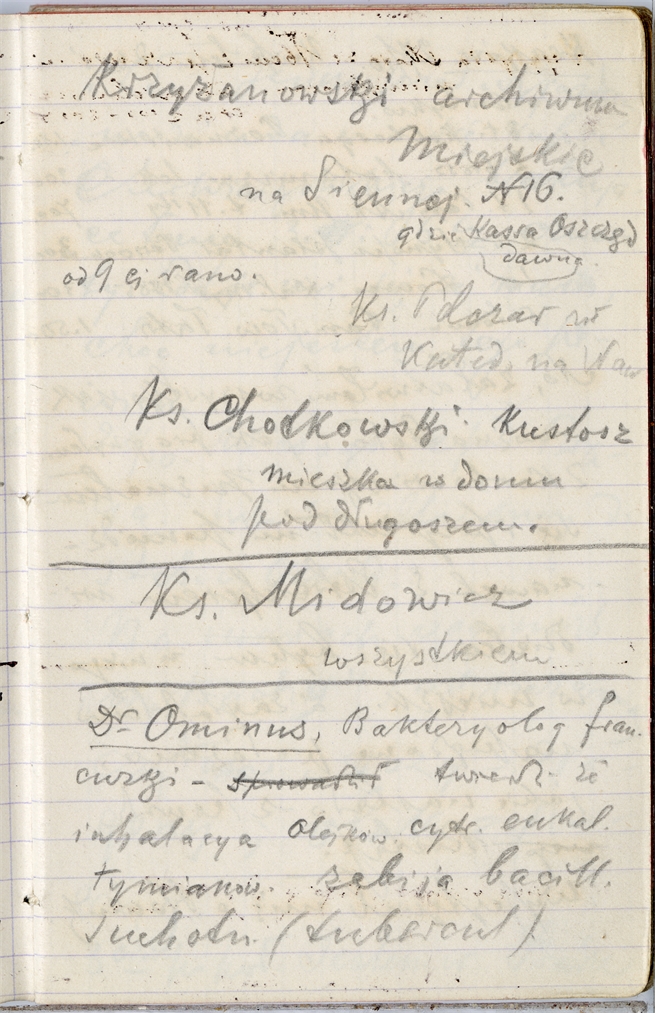 Krzyżanowski archiwum
Miejskie
na Siennej. N 16.
gdzie Kassa Oszczęd
dawna
od 9 ej rano.
Ks.
Kated. na Waw
Ks. Chotkowski. Kustosz
mieszka w domu
pod długoszem.
Ks. Midowicz
wszystkiem
Dr Ominus, Bakteryolog fran-
cuzki – twierdz. że
inhalacya olejków cytr. eukal.
tymianków. zabija bacill.
Suchotn. (tubercul)